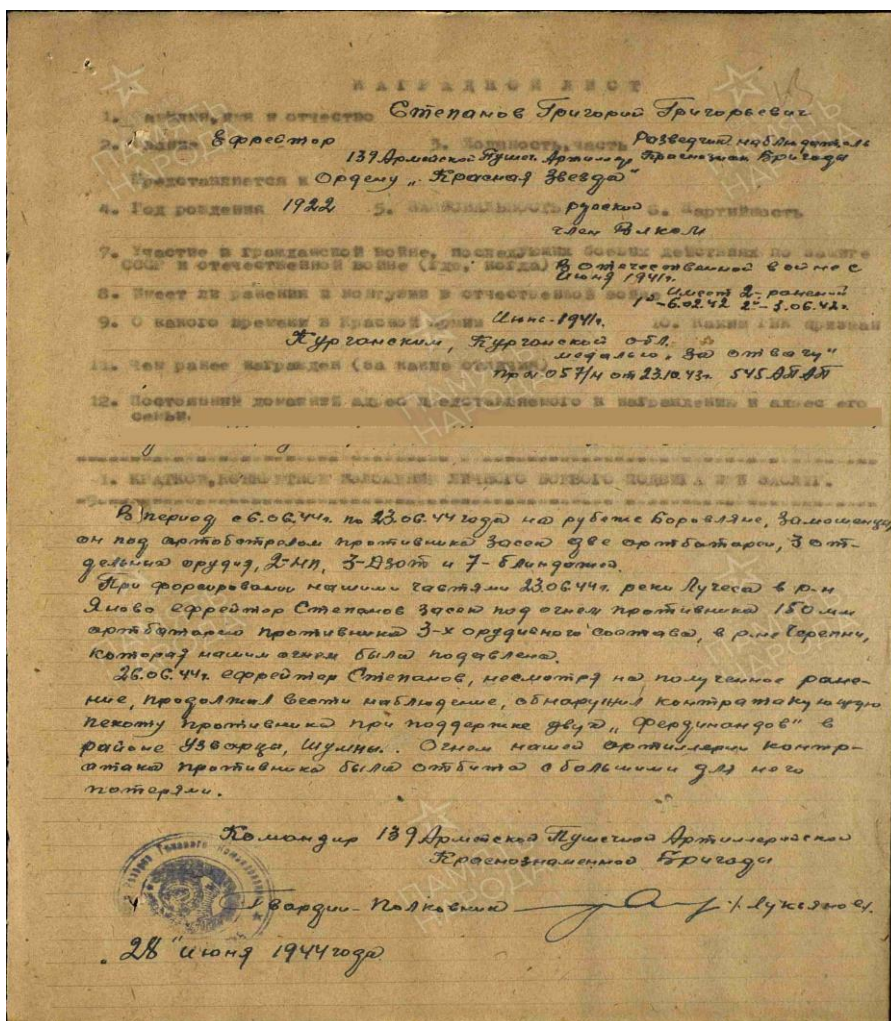 НАГРАДНОЙ ЛИСТ
1. Фамилия, имя и отчество Степанов Григорий Григорьевич
2. Звание Ефрейтор 3. Должность, часть Разведчик наблюдатель
139 Армейской Пушеч. Артиллер. Краснознам Бригады
Представляется к Ордену „Красная Звезда"
4. Год рождения 1922 5. Национальность русский 6. Партийность
член ВЛКСМ
7. Участие в гражданской войне, последующих боевых действиях по защите
СССР и отечественной войне (где, когда) В отечественной войне с
Июня 1941г.
8. Имеет ли ранения и контузии в отечественной войне Имеет 2- ранения
1е -6.02.42 2е- 3.06.42г.
9. С какого времени в Красной Армии Июнь-1941г. 10. Каким РВК призван
Курганским, Курганской обл.
медалью „За отвагу"
11. Чем ранее награжден (за какие отличия)
пр. № 057/н от 23.10.43г. 545 АПАП
12. Постоянный домашний адрес представляемого к награждению и адрес его
семьи.
1. КРАТКОЕ, КОНКРЕТНОЕ ИЗЛОЖЕНИЕ ЛИЧНОГО БОЕВОГО ПОДВИГА ИЛИ ЗАСЛУГ.
В период с 6.06.44г. по 23.06.44 года на рубеже Боровляне, Замошенцы,
он под артобстрелом противника засек две артбатареи, 3 от-
дельных орудия, 2-НП, 3-Дзот и 7-блиндажей.
При форсировании нашими частями 23.06.44г. реки Лучеса в р-н
Яново ефрейтор Степанов засек под огнем противника 150 мм
артбатарею противника 3-х орудийного состава, в р-не Черепни,
которая нашим огнем была подавлена.
26.06.44г. ефрейтор Степанов, несмотря на полученное ране-
ние, продолжал вести наблюдение, обнаружил контратакующую
пехоту противника при поддержке двух „Фердинандов" в
районе Узварца, Шумны. Огнем нашей артиллерии контр-
атака противника была отбита с большими для него
потерями.
Командир 139 Армейской Пушечной Артиллерийской
Краснознаменной Бригады
Гвардии-Полковник /Лукьянов/.
„28" июня 1944 года
ПАМЯТЬ
НАРОДА